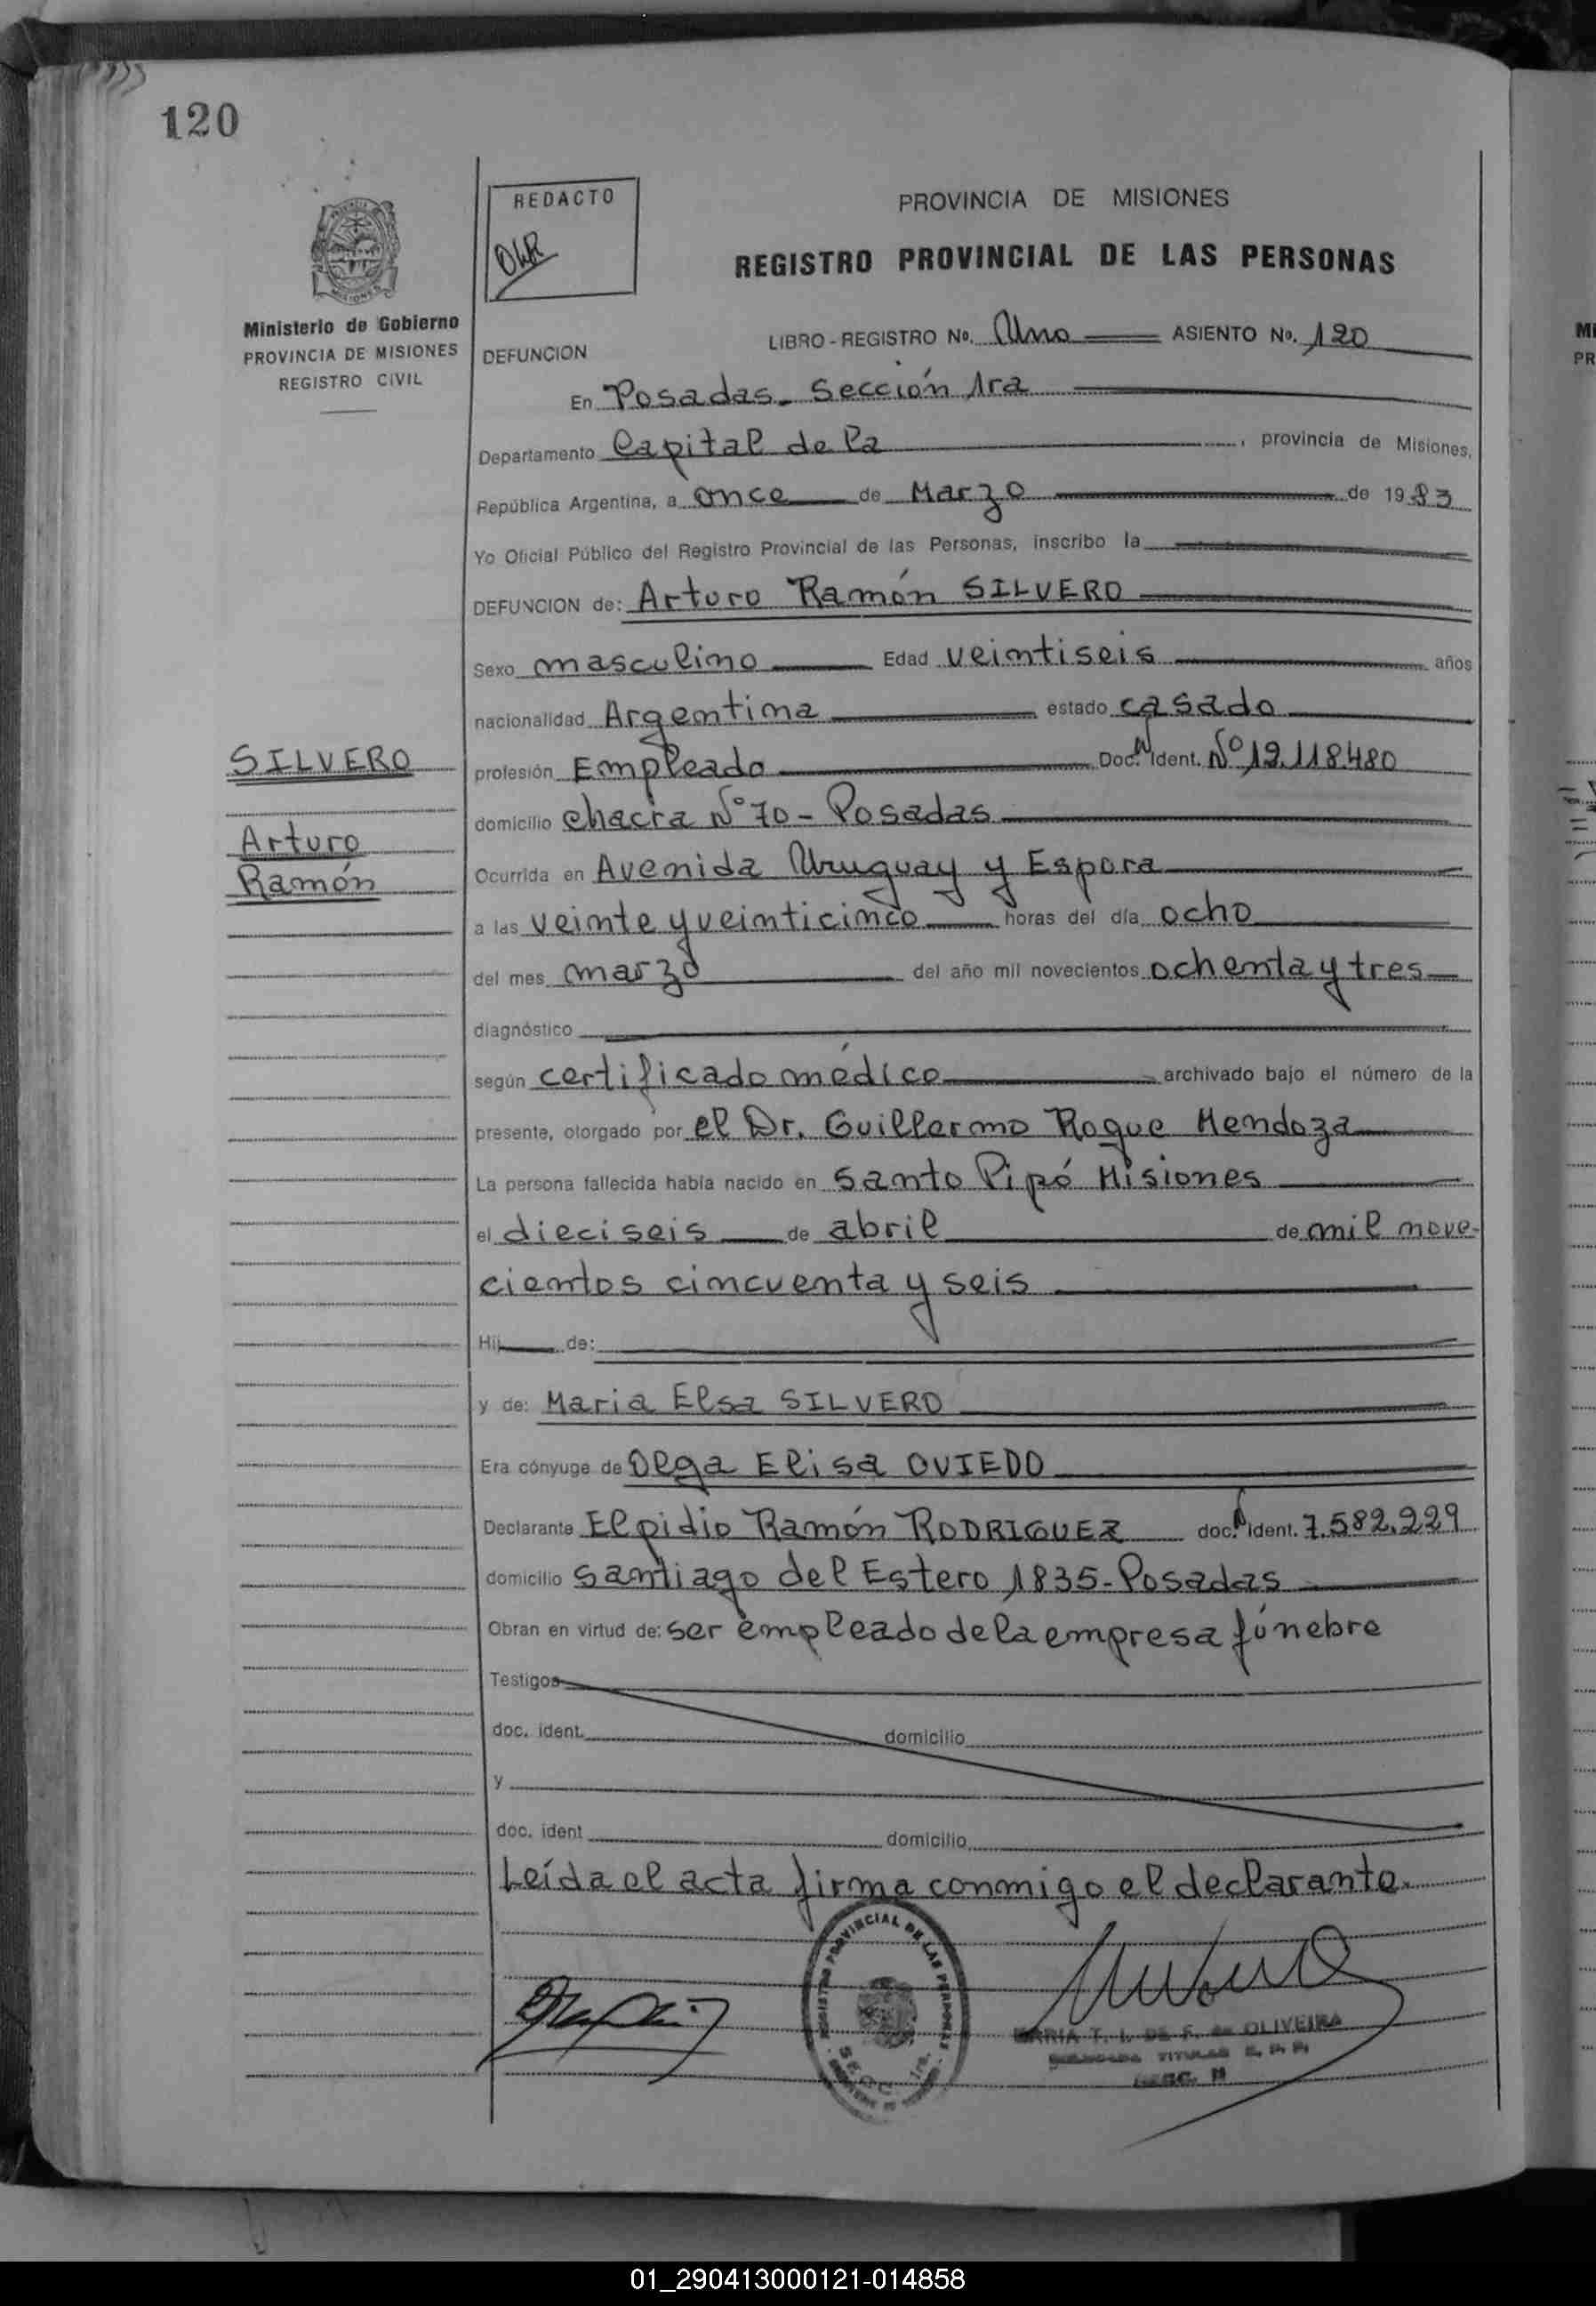 120
REDACTO
PROVINCIA DE MISIONES
REGISTRO PROVINCIAL DE LAS PERSONAS
Ministerio de Gobierno
PROVINCIA DE MISIONES
REGISTRO CIVIL
DEFUNCION
LIBRO - REGISTRO No. Uno ASIENTO No. 120
En Posadas - Sección 1ra
Departamento Capital de la , provincia de Misiones,
República Argentina, a once de Marzo de 1983
Yo Oficial Público del Registro Provincial de las Personas, inscribo la
DEFUNCION de: Arturo Ramón SILVERO
Sexo masculino Edad veintiseis años
nacionalidad Argentina estado casado
profesión Empleado Doc. N Ident. Nº 12.118.480
SILVERO
Arturo
Ramón
domicilio chacra Nº 70 - Posadas
Ocurrida en Avenida Uruguay y Espora
a las veinte y veinticinco horas del día ocho
del mes marzo del año mil novecientos ochenta y tres
diagnóstico
según certificado médico archivado bajo el número de la
presente, otorgado por el Dr. Guillermo Roque Mendoza
La persona fallecida había nacido en Santo Pipó Misiones
el dieciseis de abril de mil nove-
cientos cincuenta y seis
Hij de:
y de: Maria Elsa SILVERO
Era cónyuge de Olga Elisa OVIEDO
Declarante Elpidio Ramón RODRIGUEZ doc. N ident. 7.582.229
domicilio Santiago del Estero 1835 - Posadas
Obran en virtud de: ser empleado de la empresa fúnebre
Testigos
doc. ident. domicilio
y
doc. ident domicilio
Leída el acta firma conmigo el declarante.
REGISTRO PROVINCIAL DE LAS PERSONAS
SECC. 1ra.
MARIA T. I. DE F. de OLIVEIRA
TITULAR R. P. P.
01_290413000121-014858